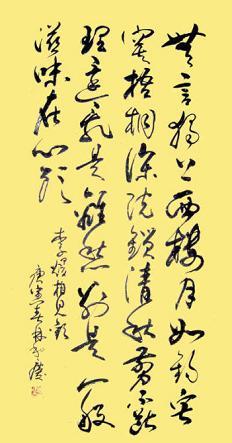 無言獨上西樓月如鉤寂
寞梧桐深院鎖清秋剪不斷
理還亂是離愁別是一般
滋味在心頭
李煜相見歡
庚寅春林